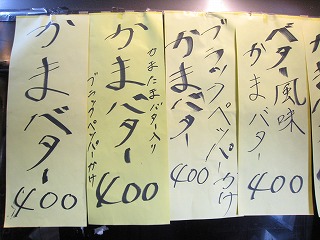 かまバター
400
かまバター
かまたまバター入り
ブラックペッパーかけ
400
ブラックペッパーかけ
かまバター
400
バター風味
かまバター
400